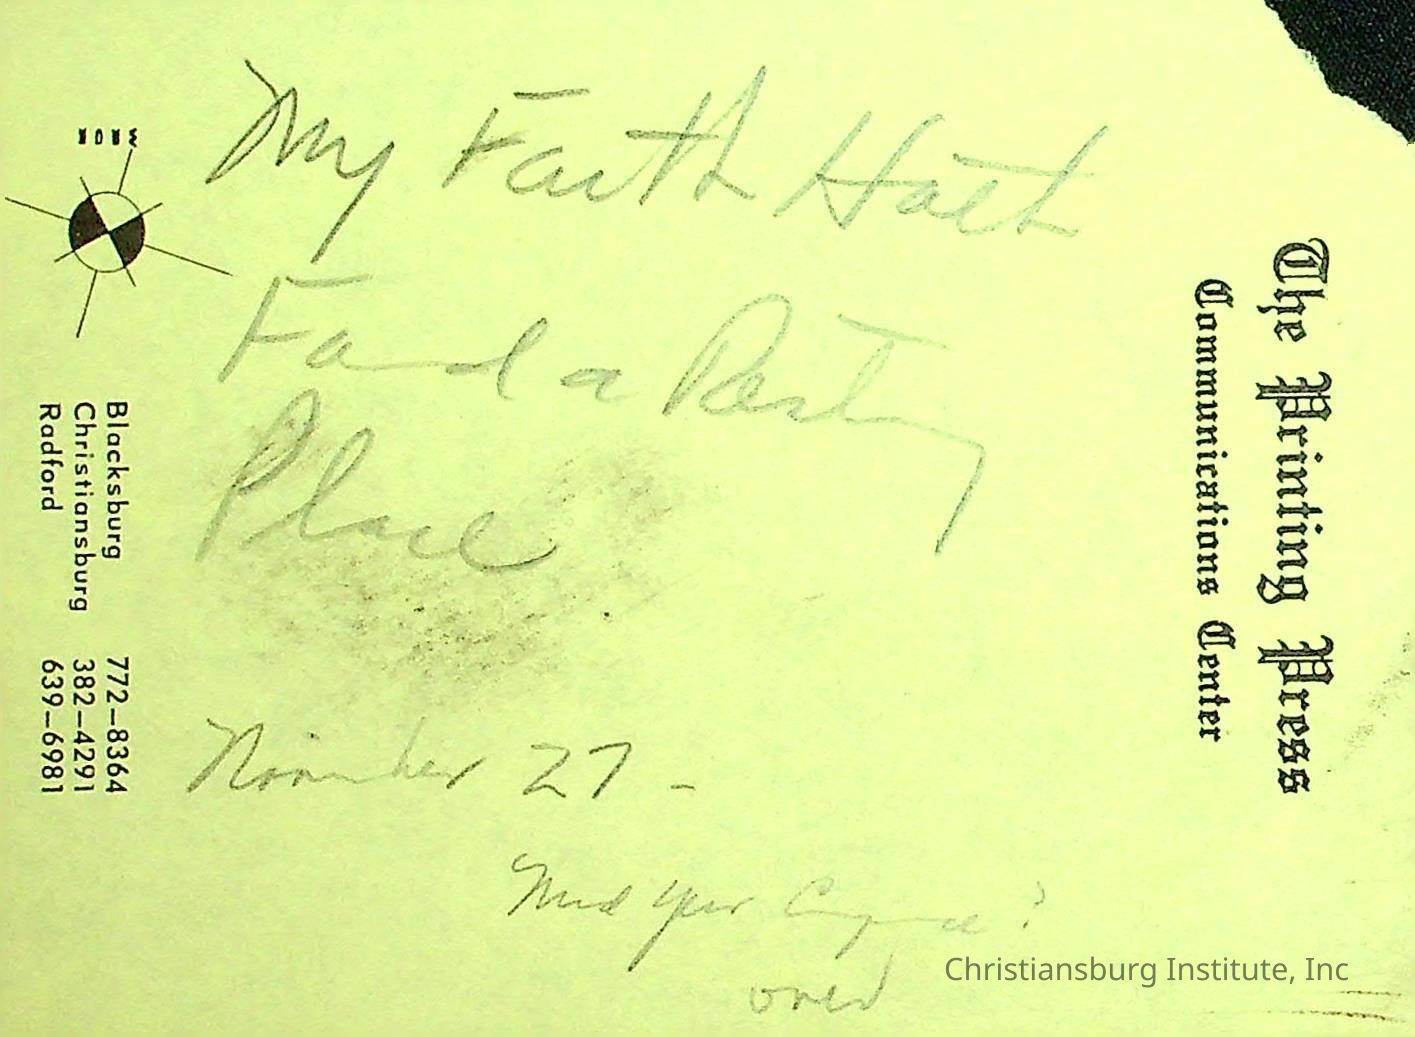 My Faith Hath
Found a Resting
Place
November 27 -
Need your ?
over
The Printing Press
Communications Center
Blacksburg 772-8364
Christiansburg 382-4291
Radford 639-6981
Christiansburg Institute, Inc